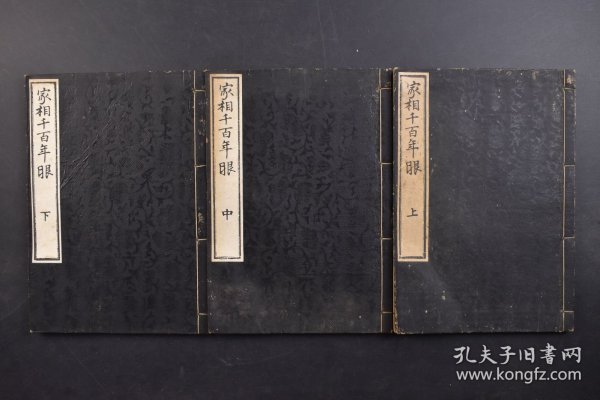 家相千百年眼 上
家相千百年眼 中
家相千百年眼 下
孔夫子旧書网
www.kongfz.com